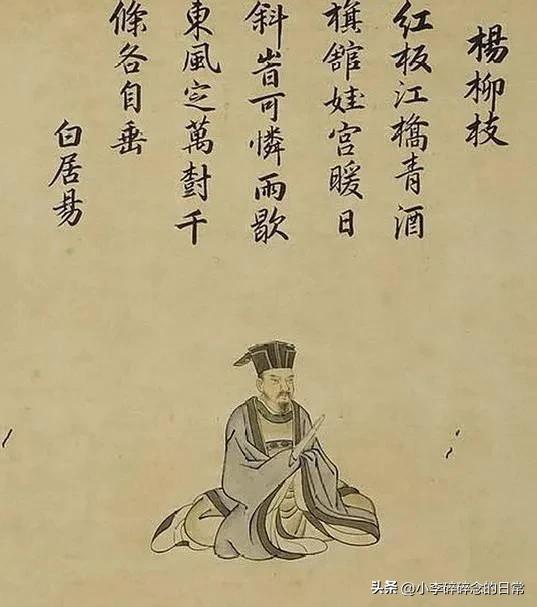 楊柳枝
紅板江橋青酒
旗舘娃宮暖日
斜旹可憐雨歇
東風定萬樹千
條各自垂
白居易
头条 @小李碎碎念的日常